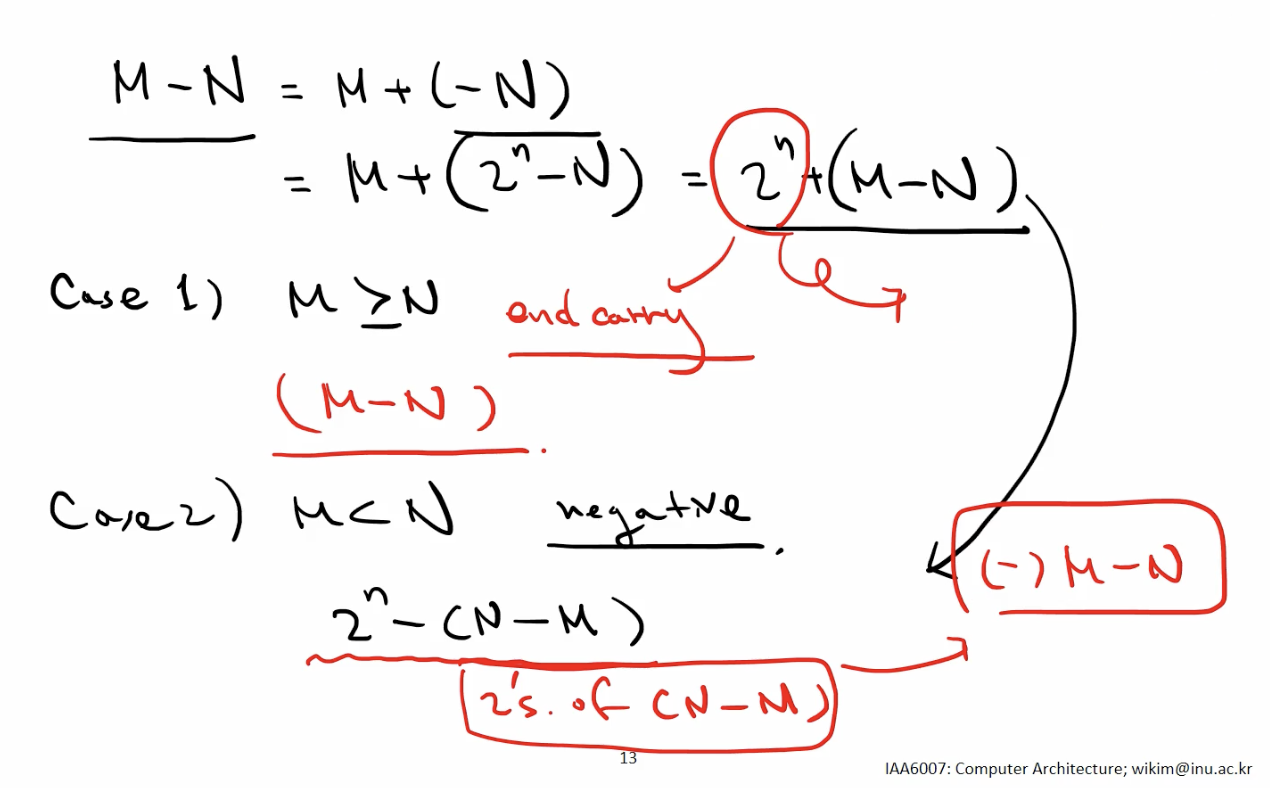 M - N = M + (-N)
= M + (2ⁿ - N) = 2ⁿ + (M - N)
Case 1) M ≥ N end carry
(M - N).
Case 2) M < N negative.
(-) M - N
2ⁿ - (N - M)
2's. of (N - M)
13
IAA6007: Computer Architecture; wikim@inu.ac.kr